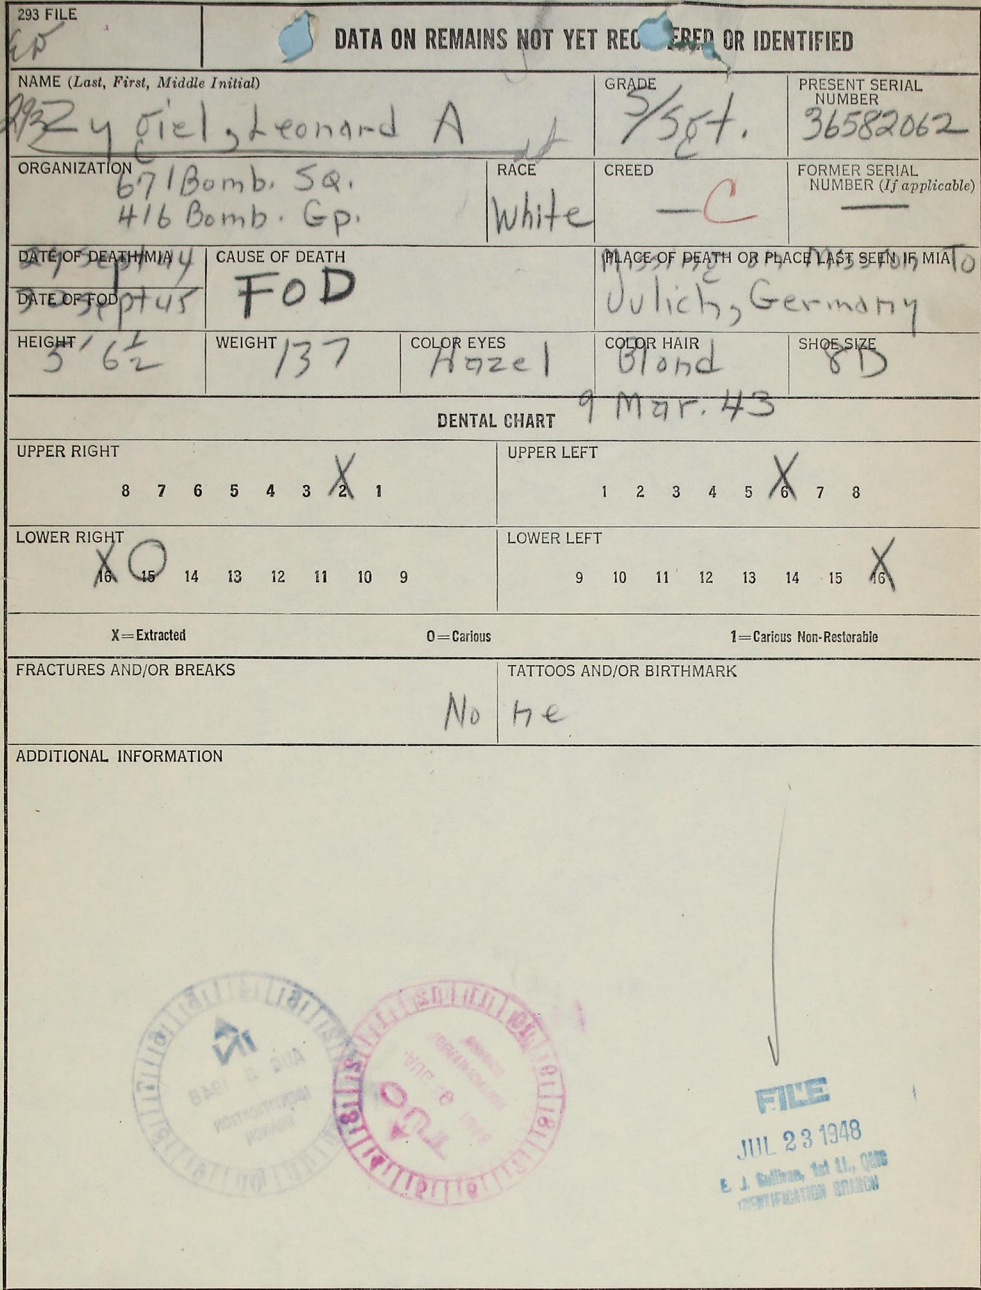 293 FILE
DATA ON REMAINS NOT YET RECOVERED OR IDENTIFIED
NAME (Last, First, Middle Initial)
293 Zygiel, Leonard A
GRADE
S/Sgt.
PRESENT SERIAL NUMBER
36582062
ORGANIZATION
671 Bomb. SQ.
416 Bomb. Gp.
RACE
White
CREED
— C
FORMER SERIAL NUMBER (If applicable)
—
DATE OF DEATH/MIA
29 Sept 44
DATE OF FOD
30 Sept 45
CAUSE OF DEATH
FOD
PLACE OF DEATH OR PLACE LAST SEEN IF MIA
Missing on Mission To
Julich, Germany
HEIGHT
5' 6½
WEIGHT
137
COLOR EYES
Hazel
COLOR HAIR
Blond
SHOE SIZE
8D
DENTAL CHART
9 Mar. 43
UPPER RIGHT
8 7 6 5 4 3 X 2 1
UPPER LEFT
1 2 3 4 5 X 6 7 8
LOWER RIGHT
X 16 O 15 14 13 12 11 10 9
LOWER LEFT
9 10 11 12 13 14 15 X 16
X=Extracted
O=Carious
1=Carious Non-Restorable
FRACTURES AND/OR BREAKS
TATTOOS AND/OR BIRTHMARK
None
ADDITIONAL INFORMATION
FILE
JUL 23 1948
E. J. Sullivan, 1st Lt., QMC
IDENTIFICATION BRANCH